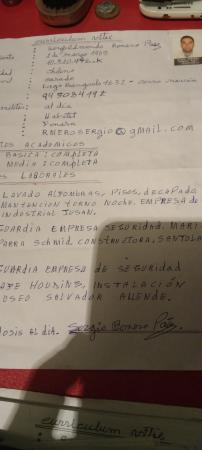 curriculum vitae
: Romero Páez
: 1 de marzo 1969
: chileno
: casado
: 1632 - cerro Navia
: 947034192
: al día
: Habitat
: Fonasa
RMEROSERGIO@GMAIL.COM
ACADEMICOS
BASICA : COMPLETA
MEDIA : COMPLETA
LABORALES
LAVADO ALFOMBRAS, PISOS, DECAPADO
MANTENCION TURNO NOCHE. EMPRESA DE
INDUSTRIAL JUSAN.
GUARDIA EMPRESA SEGURIDAD. MARTI
PARRA SCHMID, CONSTRUCTORA, SANTOLA
GUARDIA EMPRESA DE SEGURIDAD
HOUDINI, INSTALACIÓN
SALVADOR ALLENDE.
DOSIS AL DIA. Sergio Romero Páez.
curriculum vitae